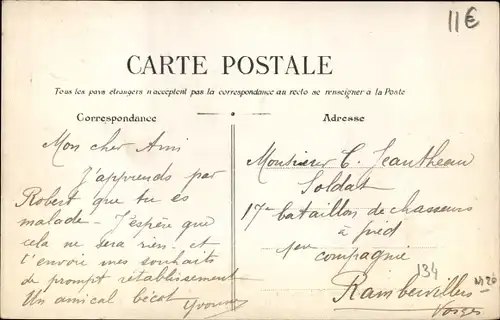 11€
CARTE POSTALE
Tous les pays étrangers n'acceptent pas la correspondance au recto se renseigner à la Poste
Correspondance
Adresse
Mon cher Ami
J'apprends par
Robert que tu es
malade – J'espère que
cela ne sera rien et
t'envoie mes souhaits
de prompt rétablissement
Un amical bécot Yvonne
Monsieur C. Jeantheau
Soldat
17e bataillon de chasseurs
à pied
1ere compagnie
134
Rambervillers
Vosges